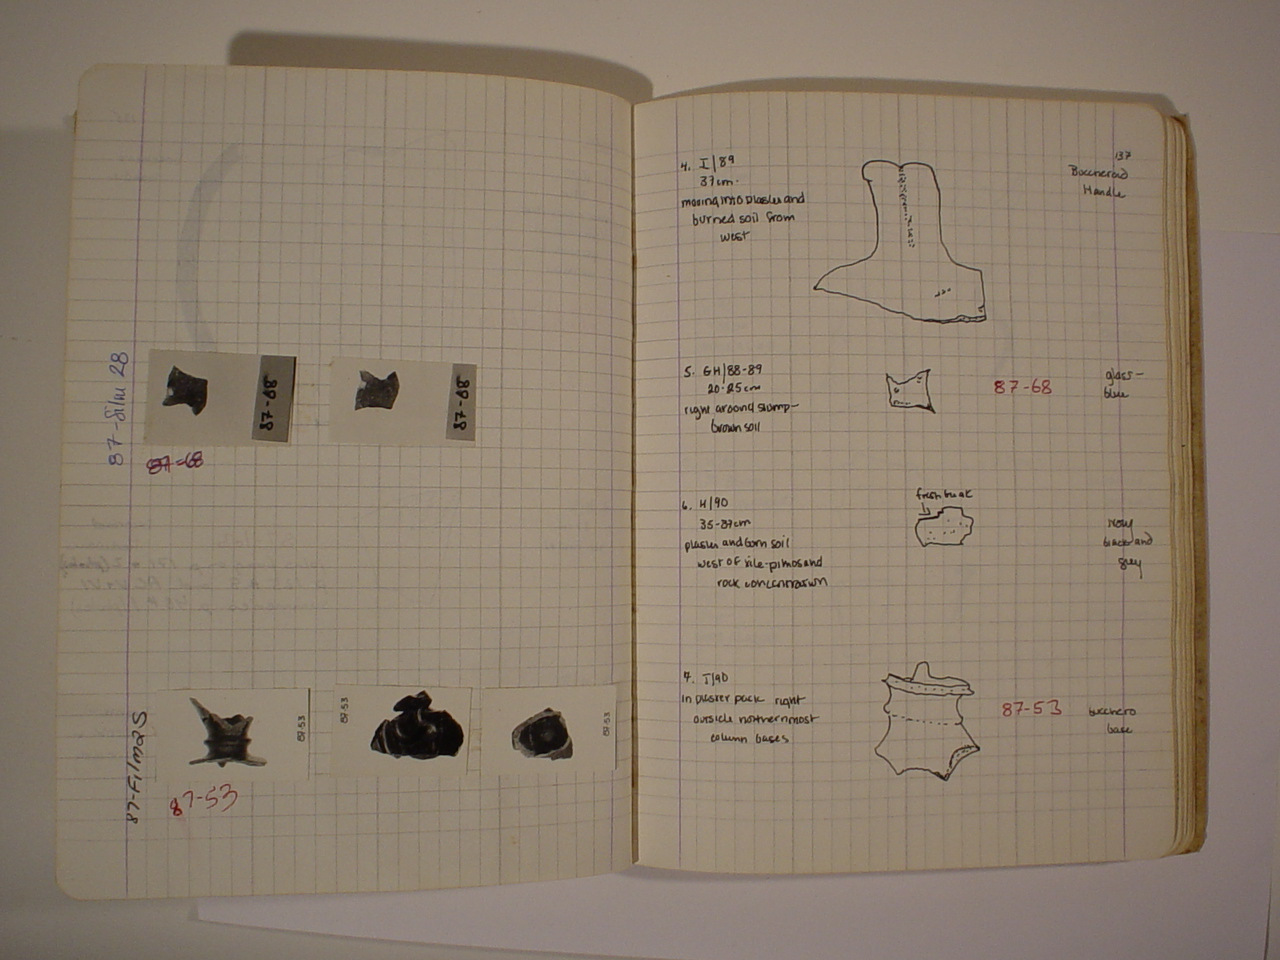 87-film 28
87-68
87-68
87-68
87-Film 25
87-53
87-53
87-53
87-53
137
4. I/89
37cm.
moving into plaster and
burned soil from
west
Buccheroid
Handle
5. GH/88-89
20-25cm
right around stump-
brown soil
87-68
glass-
blue
6. H/90
35-37cm
plaster and soil
west of tile-pithos and
rock concentration
fresh break
black and
grey
7. I/90
in plaster pack right
outside northernmost
column bases
87-53
bucchero
base